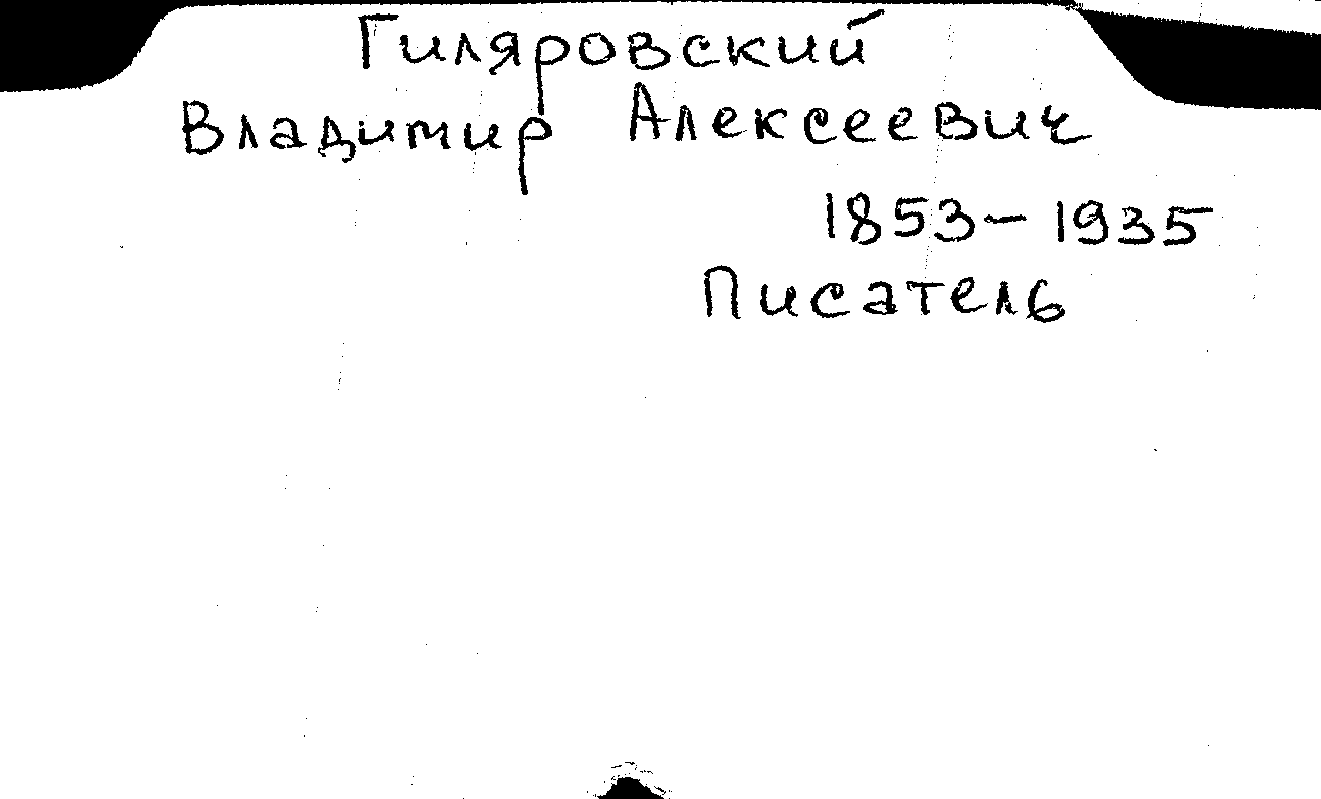 Гиляровский
Владимир Алексеевич
1853-1935
Писатель